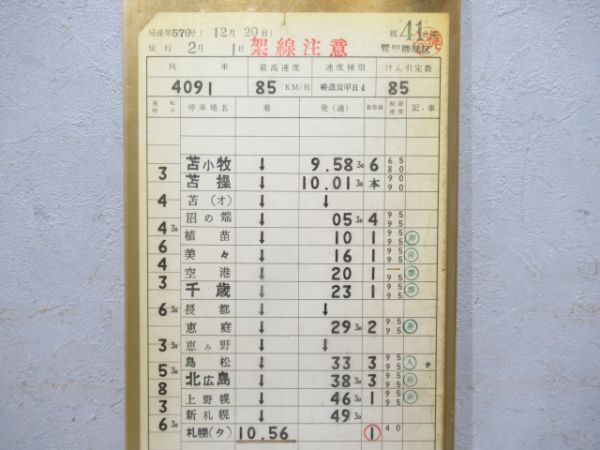 局達第570号( 12月 20日)
施行 2月 1日 架線注意 組 41
列 車 最高速度 速度種別 けん引定数
4091 85 KM/H 85
運転時分 停車場名 着 発(通) 着発線 制限速度 記事
苫小牧 ↓ 9.58 30 6 65 80
3
苫操 ↓ 10.01 30 本 90 90
4
苫(オ) ↓ ↓
沼の端 ↓ 05 30 4 95 95
4 30
植苗 ↓ 10 1 95 95
6
美々 ↓ 16 1 95 95
4
空港 ↓ 20 1 95
3
千歳 ↓ 23 1 95 95
6 30
長都 ↓ ↓
恵庭 ↓ 29 30 2 95 95
3 30
恵み野 ↓ ↓
島松 ↓ 33 3 95 95
5 30
北広島 ↓ 38 30 3 95 95
8
上野幌 ↓ 46 30 1 95 95
3
新札幌 ↓ 49 30
6 30
札幌(タ) 10.56 1 40